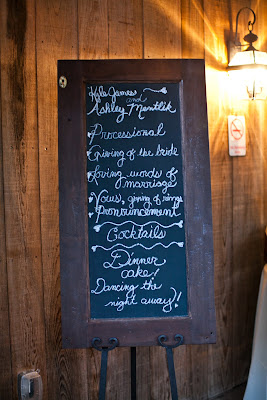 Kyle James
and
Ashley Mentlik
Processional
Giving of the bride
Loving words of
marriage
Vows, giving of rings
Pronouncement
Cocktails
Dinner
cake!
Dancing the
night away!